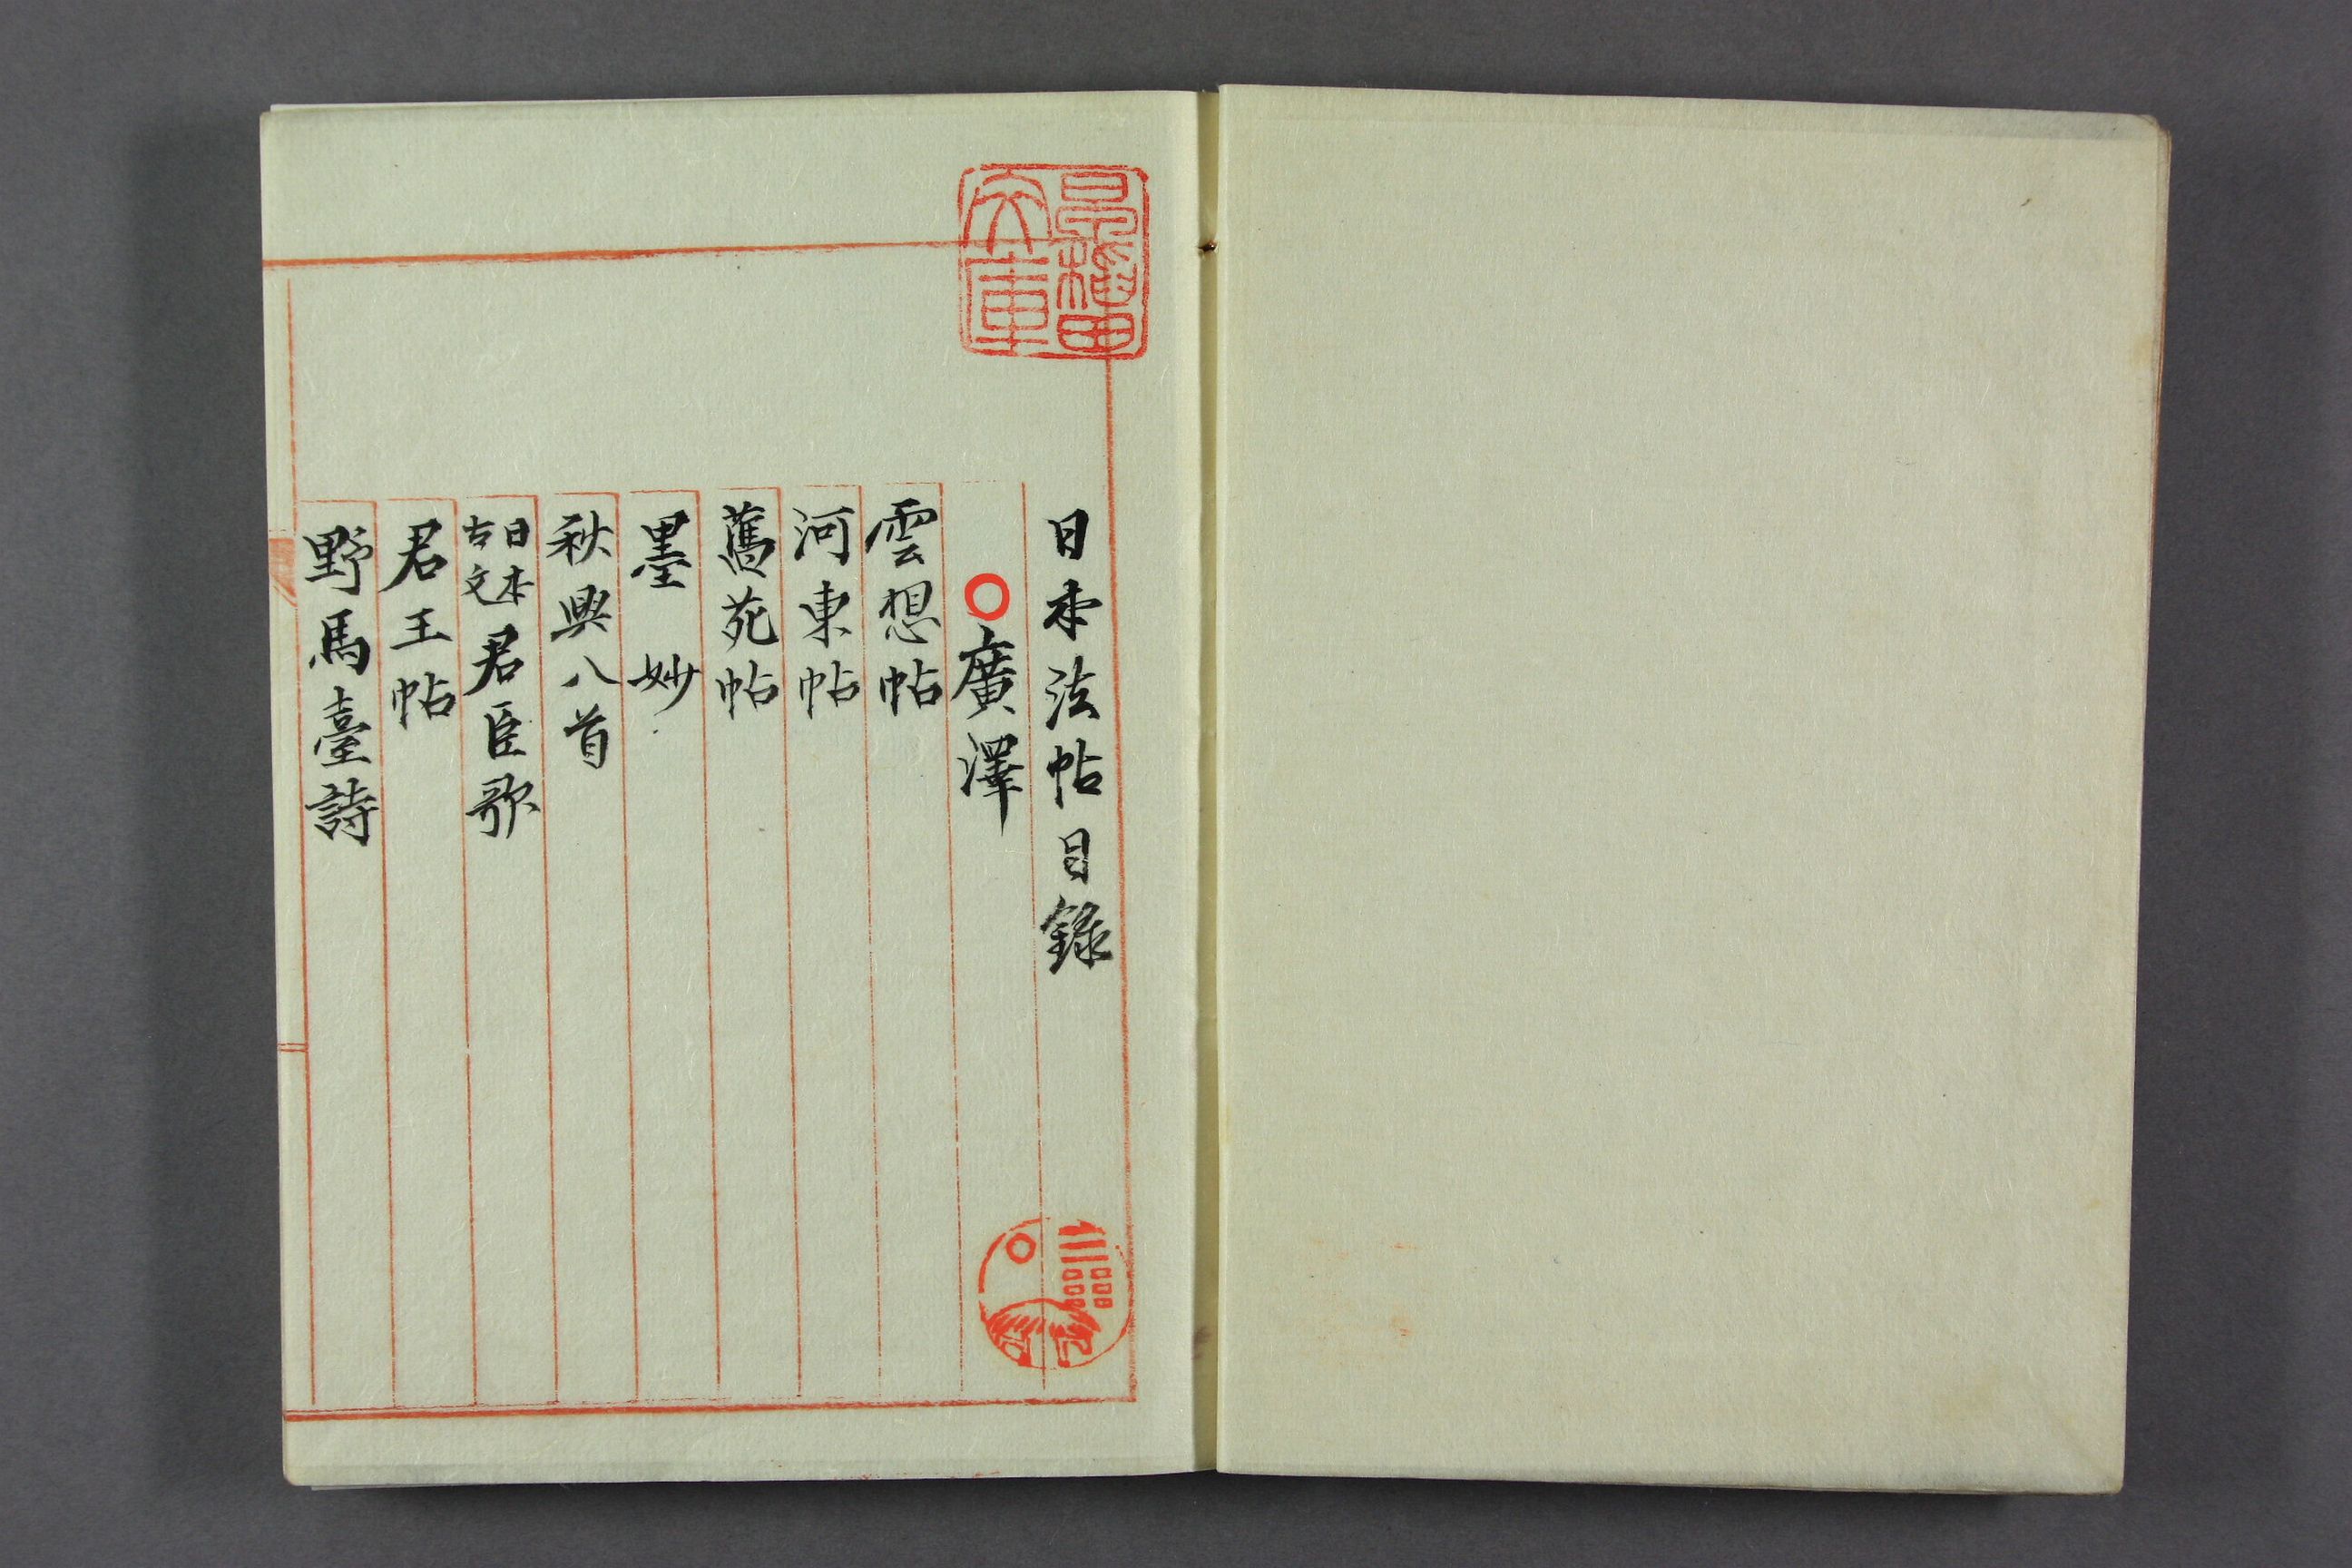 日本法帖目録
○廣澤
雲想帖
河東帖
舊苑帖
墨妙
秋興八首
日本古文君臣歌
君王帖
野馬臺詩
文庫